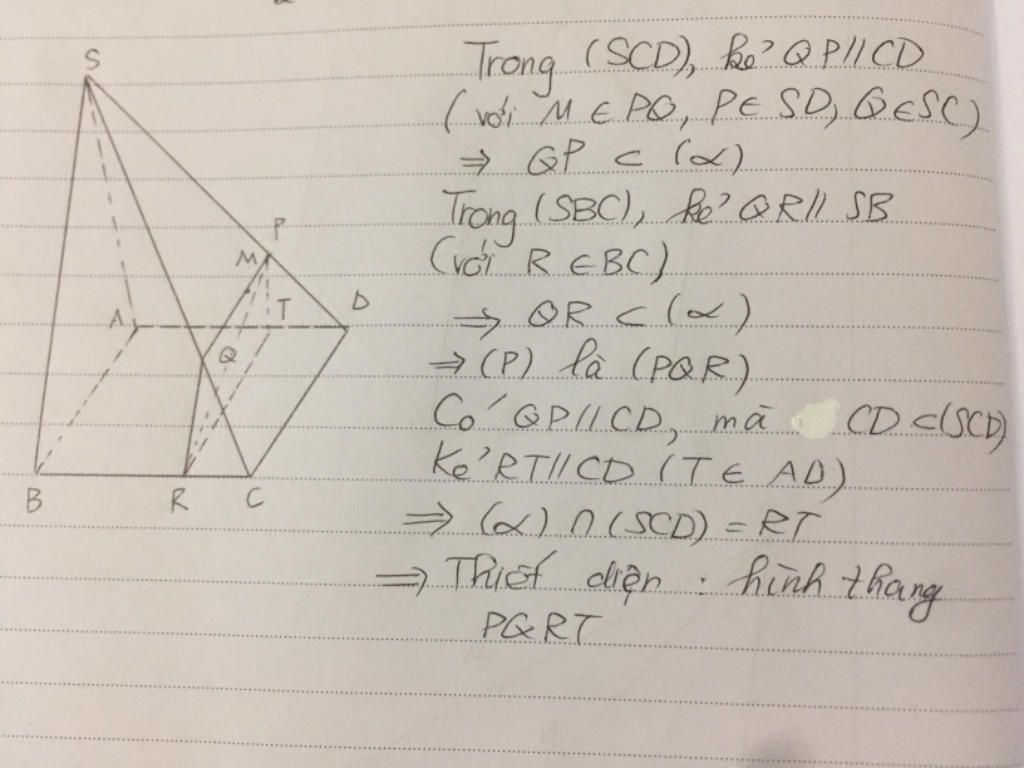 S
Trong (SCD), kẻ QP // CD
(với M ∈ PQ, P ∈ SD, Q ∈ SC)
⇒ QP ⊂ (α)
Trong (SBC), kẻ QR // SB
P
M
(với R ∈ BC)
A
T
D
⇒ QR ⊂ (α)
Q
⇒ (P) là (PQR)
Có QP // CD, mà CD ⊂ (SCD)
Kẻ RT // CD (T ∈ AD)
B
R
C
⇒ (α) ∩ (SCD) = RT
⇒ Thiết diện : hình thang
PQRT